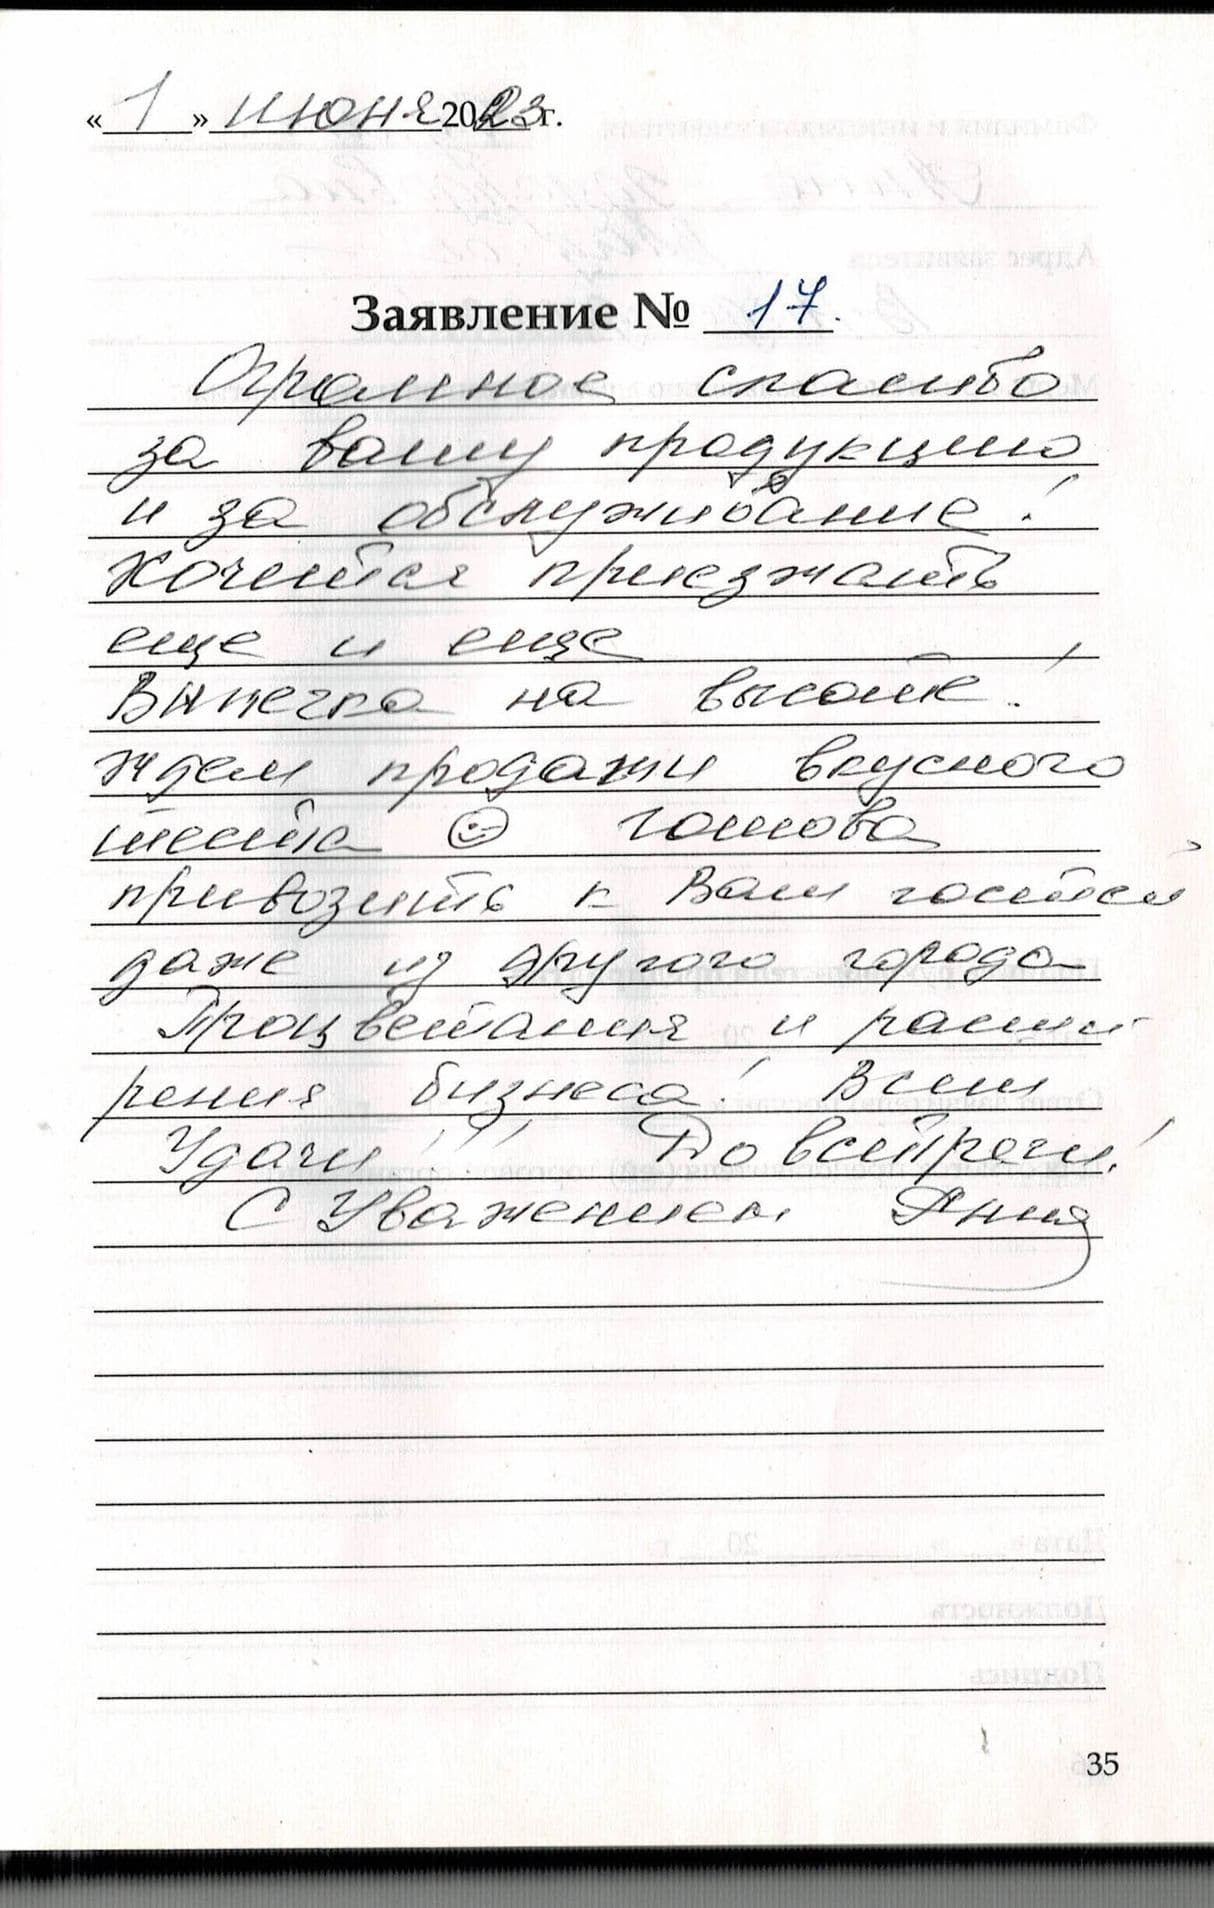 « 1 » июня 2023 г.
Заявление № 17.
Огромное спасибо
за вашу продукцию
и за обслуживание!
Хочется приезжать
еще и еще
Выпечка на высоте!
ждем продажи вкусного
теста ☺ готова
привозить к Вам гостей
даже из другого города
Процветания и расши
рения бизнеса! Всем
Удачи!!! До встречи!
С Уважением
35